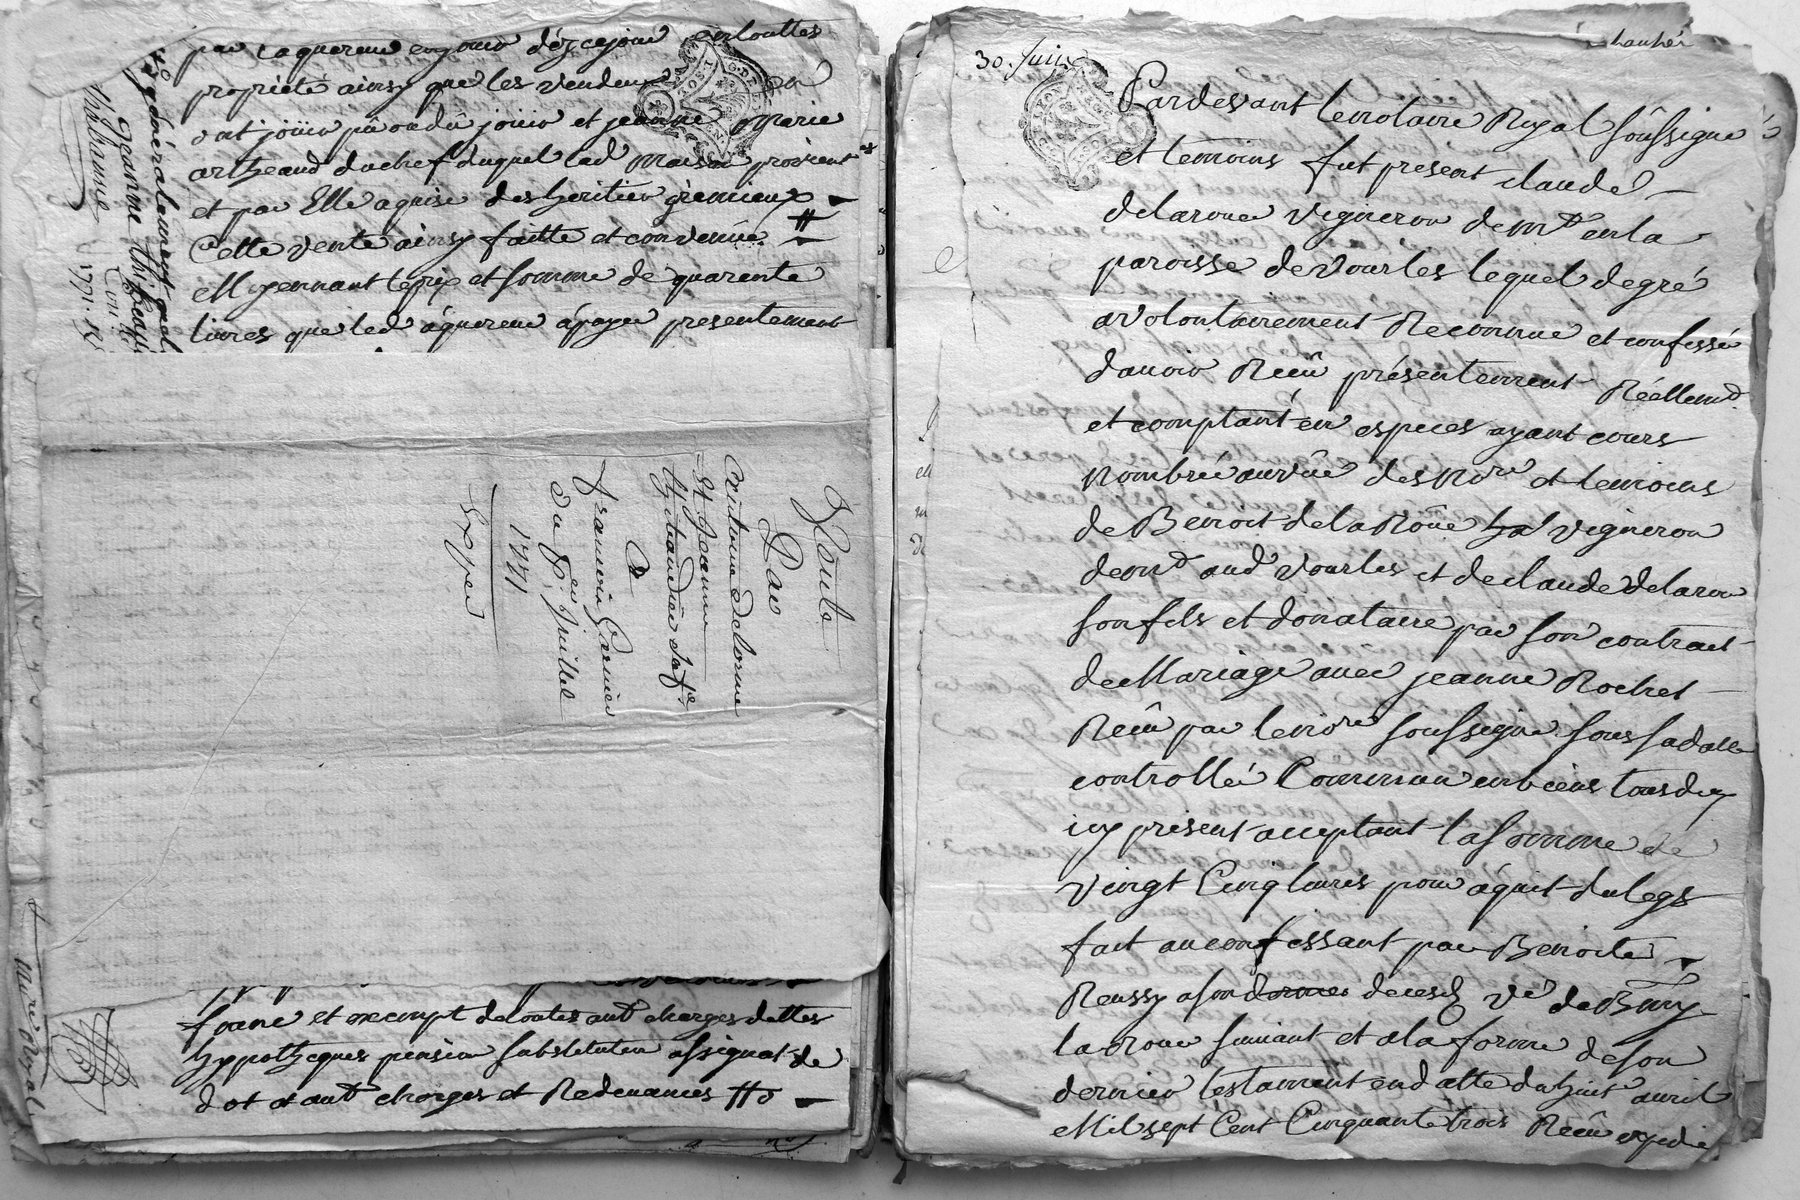 par laquereur en jouir dez cejour en touttes
propriété ainsy que les vendeurs en
ont joüir pû ou dû joüir et jeanne Marie
artheaud du chef duquel lad maison provient
et par Elle aquise des heritiers grenieux
Cette vente ainsy faitte et convenüe
Moyennant le prix et somme de quarente
livres que led âquereur â payer presentement
généralement quel
Jeanne thibeau
1771
Vente
Par
Antoinne delorme
et Jeanne
hytiaudière sa fe
A
francoise Grenier
Du 7 Juillet
1771
Exper
franc et exempt de toutes autt charges dettes
hypotheques pension substitution assignat de
dot et autt charges et Redevances
no Royal
30. Juin
Pardevant le notaire Royal soûssigné
et temoins fut present claude
delaroue vigneron demt en la
paroisse de Vourles lequel de gré
a volontairement Reconnue et confessé
d'avoir Reçû présentement Réellemt
et comptant en especes ayant cours
nombré au vûë des Nore et temoins
de Benoit de la Roûe vigneron
demt aud Vourles et de claude delaroue
son fils et donataire par son contract
de Mariage avec jeanne Rochet
Reçû par le nore soussigné sous sa datte
controllé Commun en biens tous deux
icy present acceptant la somme de
vingt Cinq livres pour âquit du legs
fait au confessant par Benoite
Reussy a son deces ve de Bmy
la Roue suivant et a la forme de son
dernier testament en datte du huit avril
Mil sept Cent Cinquante trois Reçû expedié